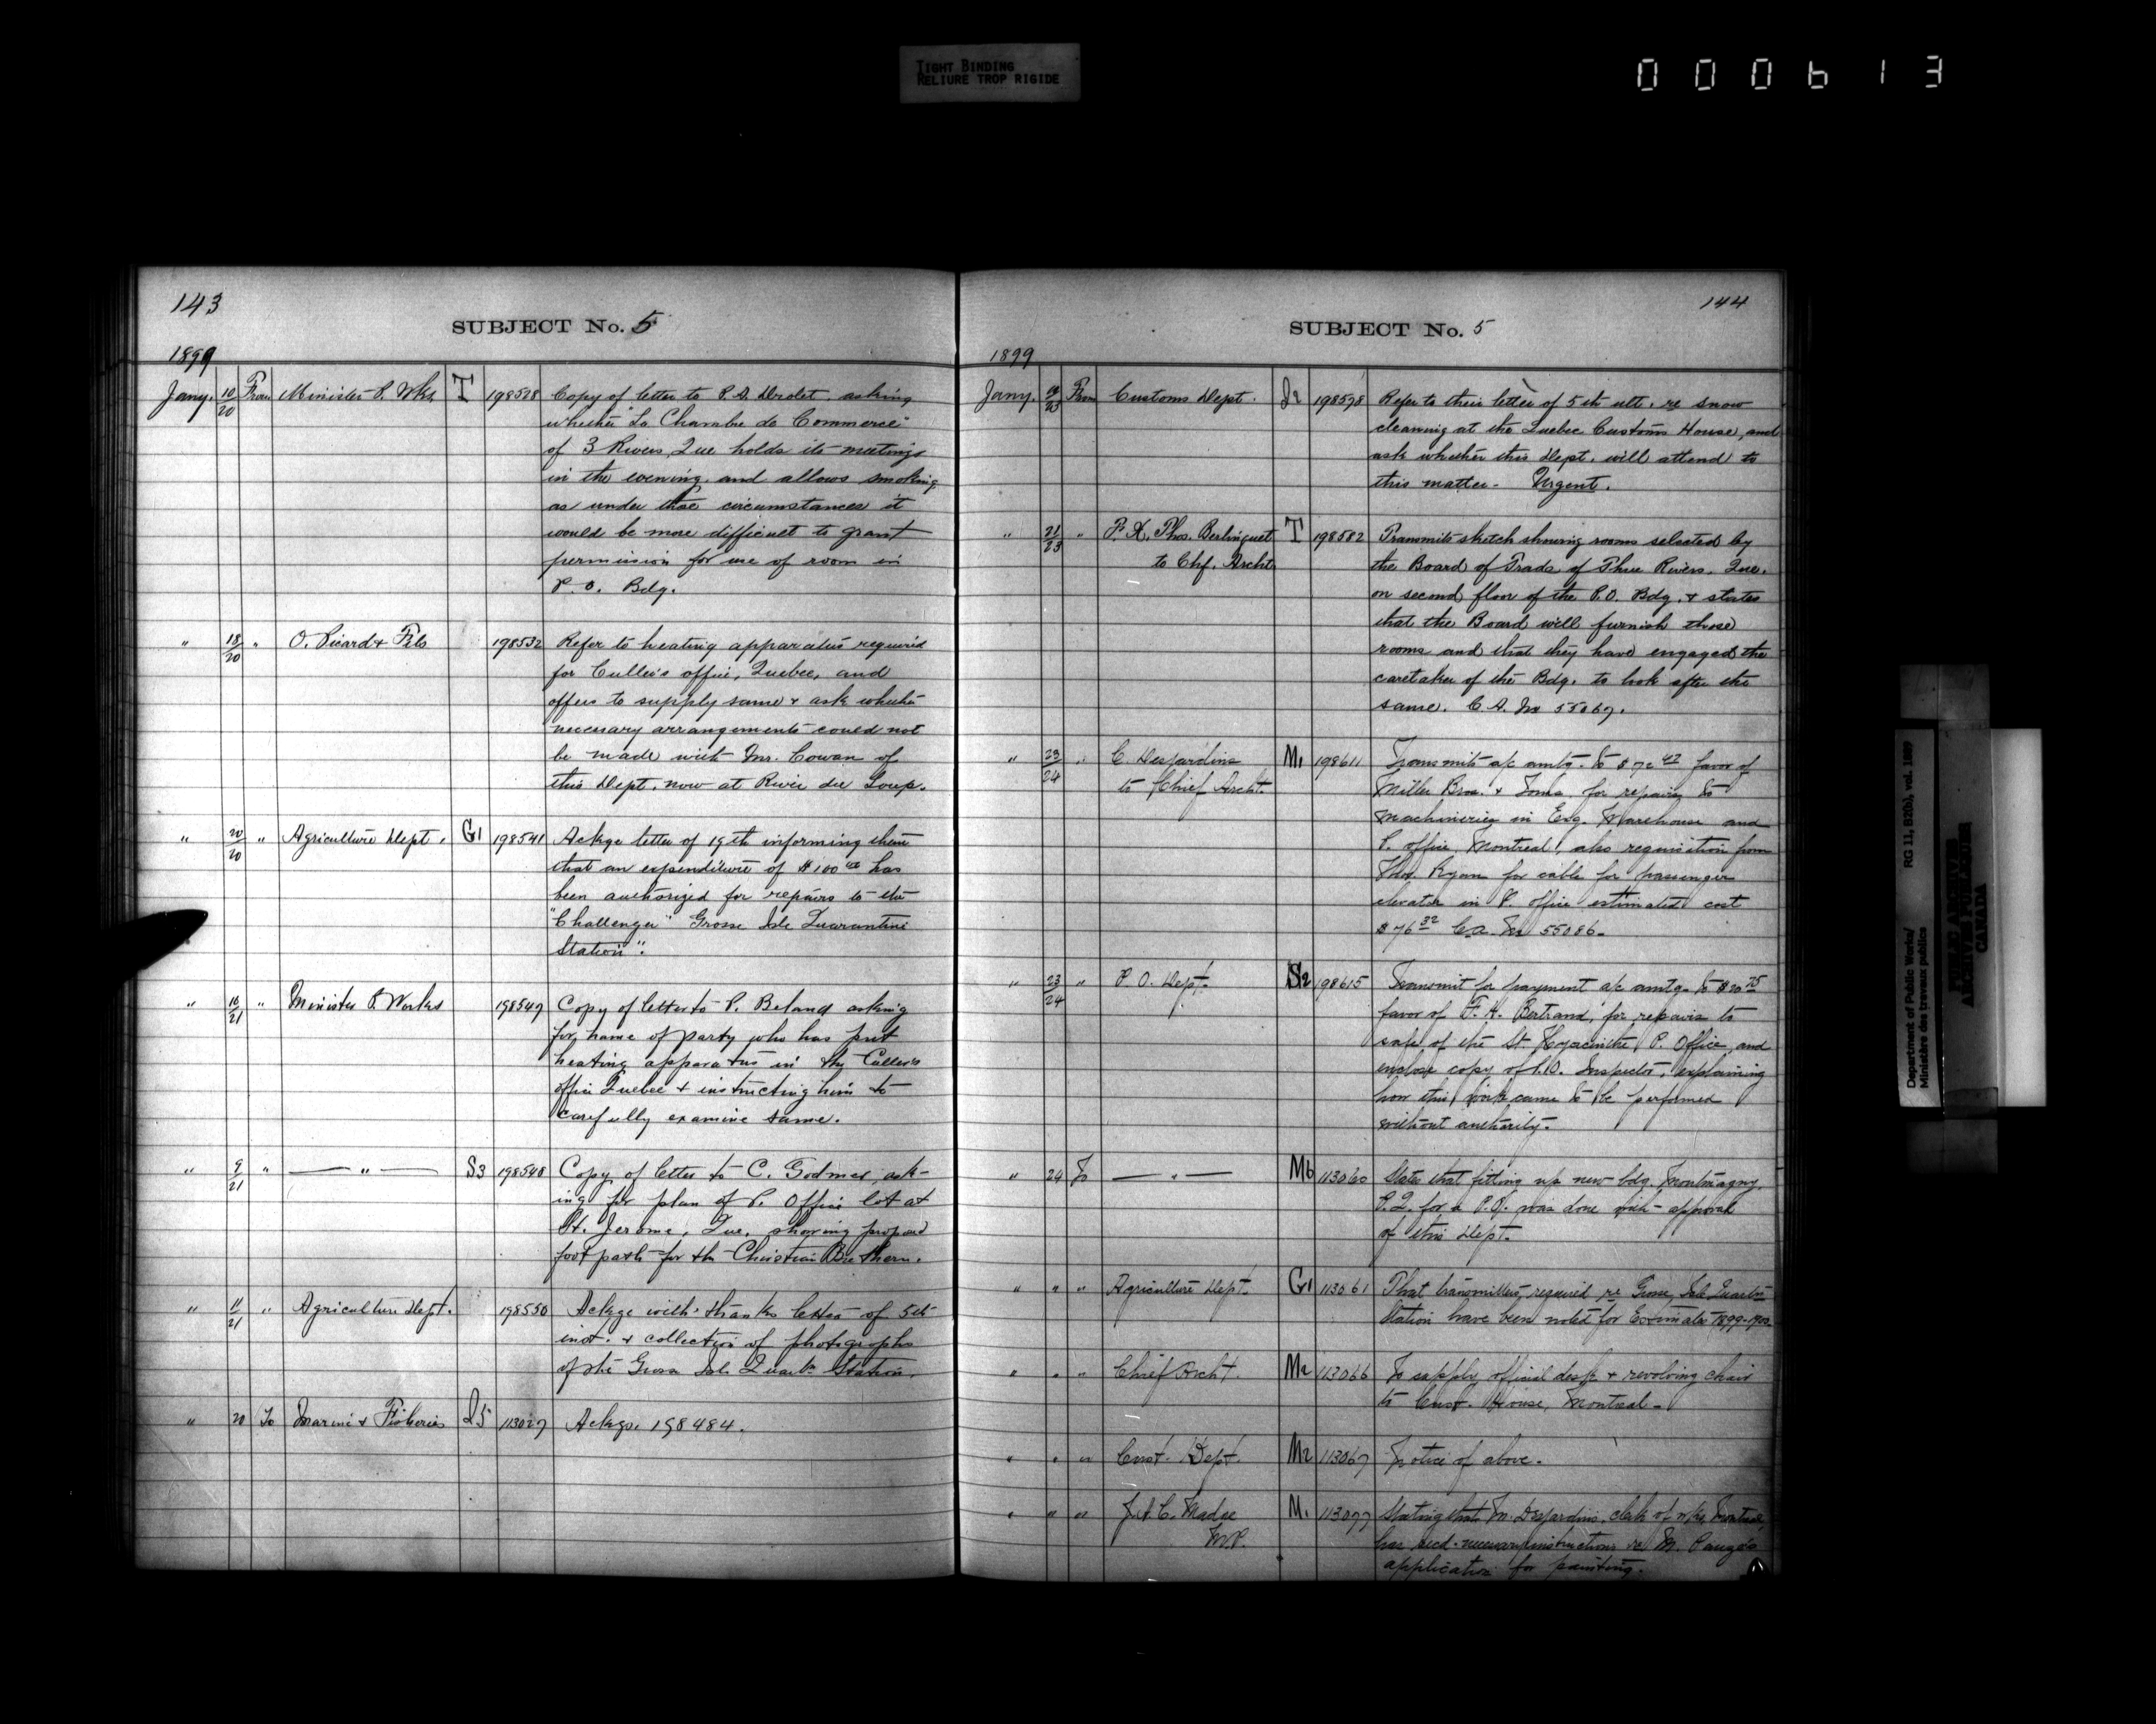 TIGHT BINDING
RELIURE TROP RIGIDE
000613
143
SUBJECT No. 5
1899
Jany. 10/20 From Minister P. Wks. T 198528 Copy of letter to P. A. Drolet, asking
whether "La Chambre de Commerce"
of 3 Rivers, Que holds its meetings
in the evening, and allows smoking,
as under those circumstances it
would be more difficult to grant
permission for use of room in
P. O. Bdg.
" 18/20 " O. Picard & Fils 198532 Refer to heating apparatus required
for Culler's office, Quebec, and
offers to supply same & ask whether
necessary arrangements could not
be made with Mr. Cowan of
this Dept. now at Rivie du Loup.
" 20/20 " Agriculture Dept. G1 198541 Ackge letter of 19th informing them
that an expenditure of $100 00 has
been authorized for repairs to the
"Challenger" Grosse Isle Quarantine
Station".
" 16/21 " Minister P. Works 198547 Copy of letter to P. Beland asking
for name of party who has put
heating apparatus in the Culler's
office Quebec & instructing him to
carefully examine same.
" 9/21 " — " — S3 198548 Copy of letter to C. Godmer, ask-
ing for plan of P. Office lot at
St. Jerome, Que, showing proposed
foot path for the Christian Brethern.
" 11/21 " Agriculture Dept. 198550 Ackge with thanks letter of 5th
inst. & collection of photographs
of the Gross Isle Quartn Station.
" 20 To Marine & Fisheries Q5 113027 Ackge. 198484.
144
SUBJECT No. 5
1899
Jany. 19/23 From Customs Dept. Q2 198578 Refer to their letter of 5th ult. re snow
cleaning at the Quebec Customs House, and
ask whether this Dept. will attend to
this matter- Urgent.
" 21/23 " F. X. Thos. Berlinguet T 198582 Transmits sketch showing rooms selected by
to Chf. Archt. the Board of Trade of Three Rivers, Que.
on second floor of the P.O. Bdg. & states
that the Board will furnish these
rooms and that they have engaged the
caretaker of the Bdg. to look after the
same. C. A. No 55067.
" 23/24 " C. Desjardins M1 198611 Transmits a/c amtg. to $72 42 favor of
to Chief Archt. Miller Bros. & Toms for repairs to
machineries in Exg. Warehouse and
P. office, Montreal, also requisition from
Thos. Ryan for cable for passenger
elevator in P. office estimated cost
$76 32 C.A. No 55086-
" 23/24 " P. O. Dept. S2 198615 Transmit for payment a/c amtg. to $20 75
favor of F. H. Bertrand, for repairs to
safe of the St. Hyacinthe P. Office, and
enclose copy of P.O. Inspector, explaining
how this work came to be performed
without authority.
" 24 To — " — M6 113060 States that fitting up new bdg. Montmagny,
P.Q. for a P.O. was done with approval
of this Dept.
" " " Agriculture Dept. G1 113061 That transmitters required re Grosse Isle Quartn
Station have been noted for Estimates 1899-1900.
" " " Chief Archt. M2 113066 To supply official desk & revolving chair
to Cust. House, Montreal-
" " " Cust. Dept. M2 113067 Notice of above.
" " " J. A. C. Madore M1 113077 Stating that M. Desjardins, clerk of wks, Montreal,
M.P. has recd. necessary instructions re M. Pauze's
application for painting.
Department of Public Works/
Ministère des travaux publics
RG 11, B2(b), vol. 1897
PUBLIC ARCHIVES
ARCHIVES PUBLIQUES
CANADA